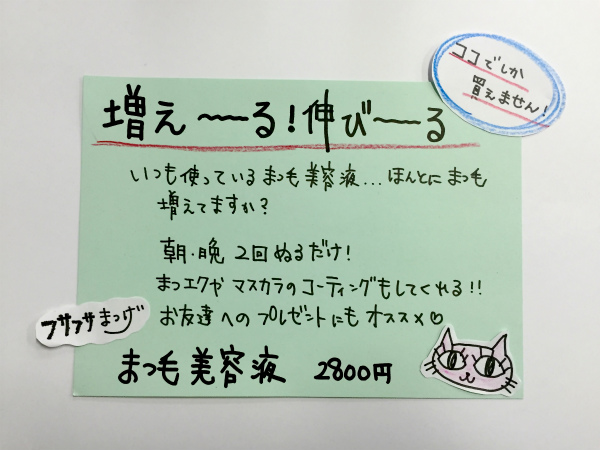 ココでしか
買えません!
増え〜〜る!伸び〜〜る
いつも使っているまつ毛美容液...ほんとにまつ毛
増えてますか?
朝・晩 2回ぬるだけ!
まつエクや マスカラのコーティングもしてくれる!!
お友達へのプレゼントにもオススメ♡
フサフサまつげ
まつ毛美容液 2800円